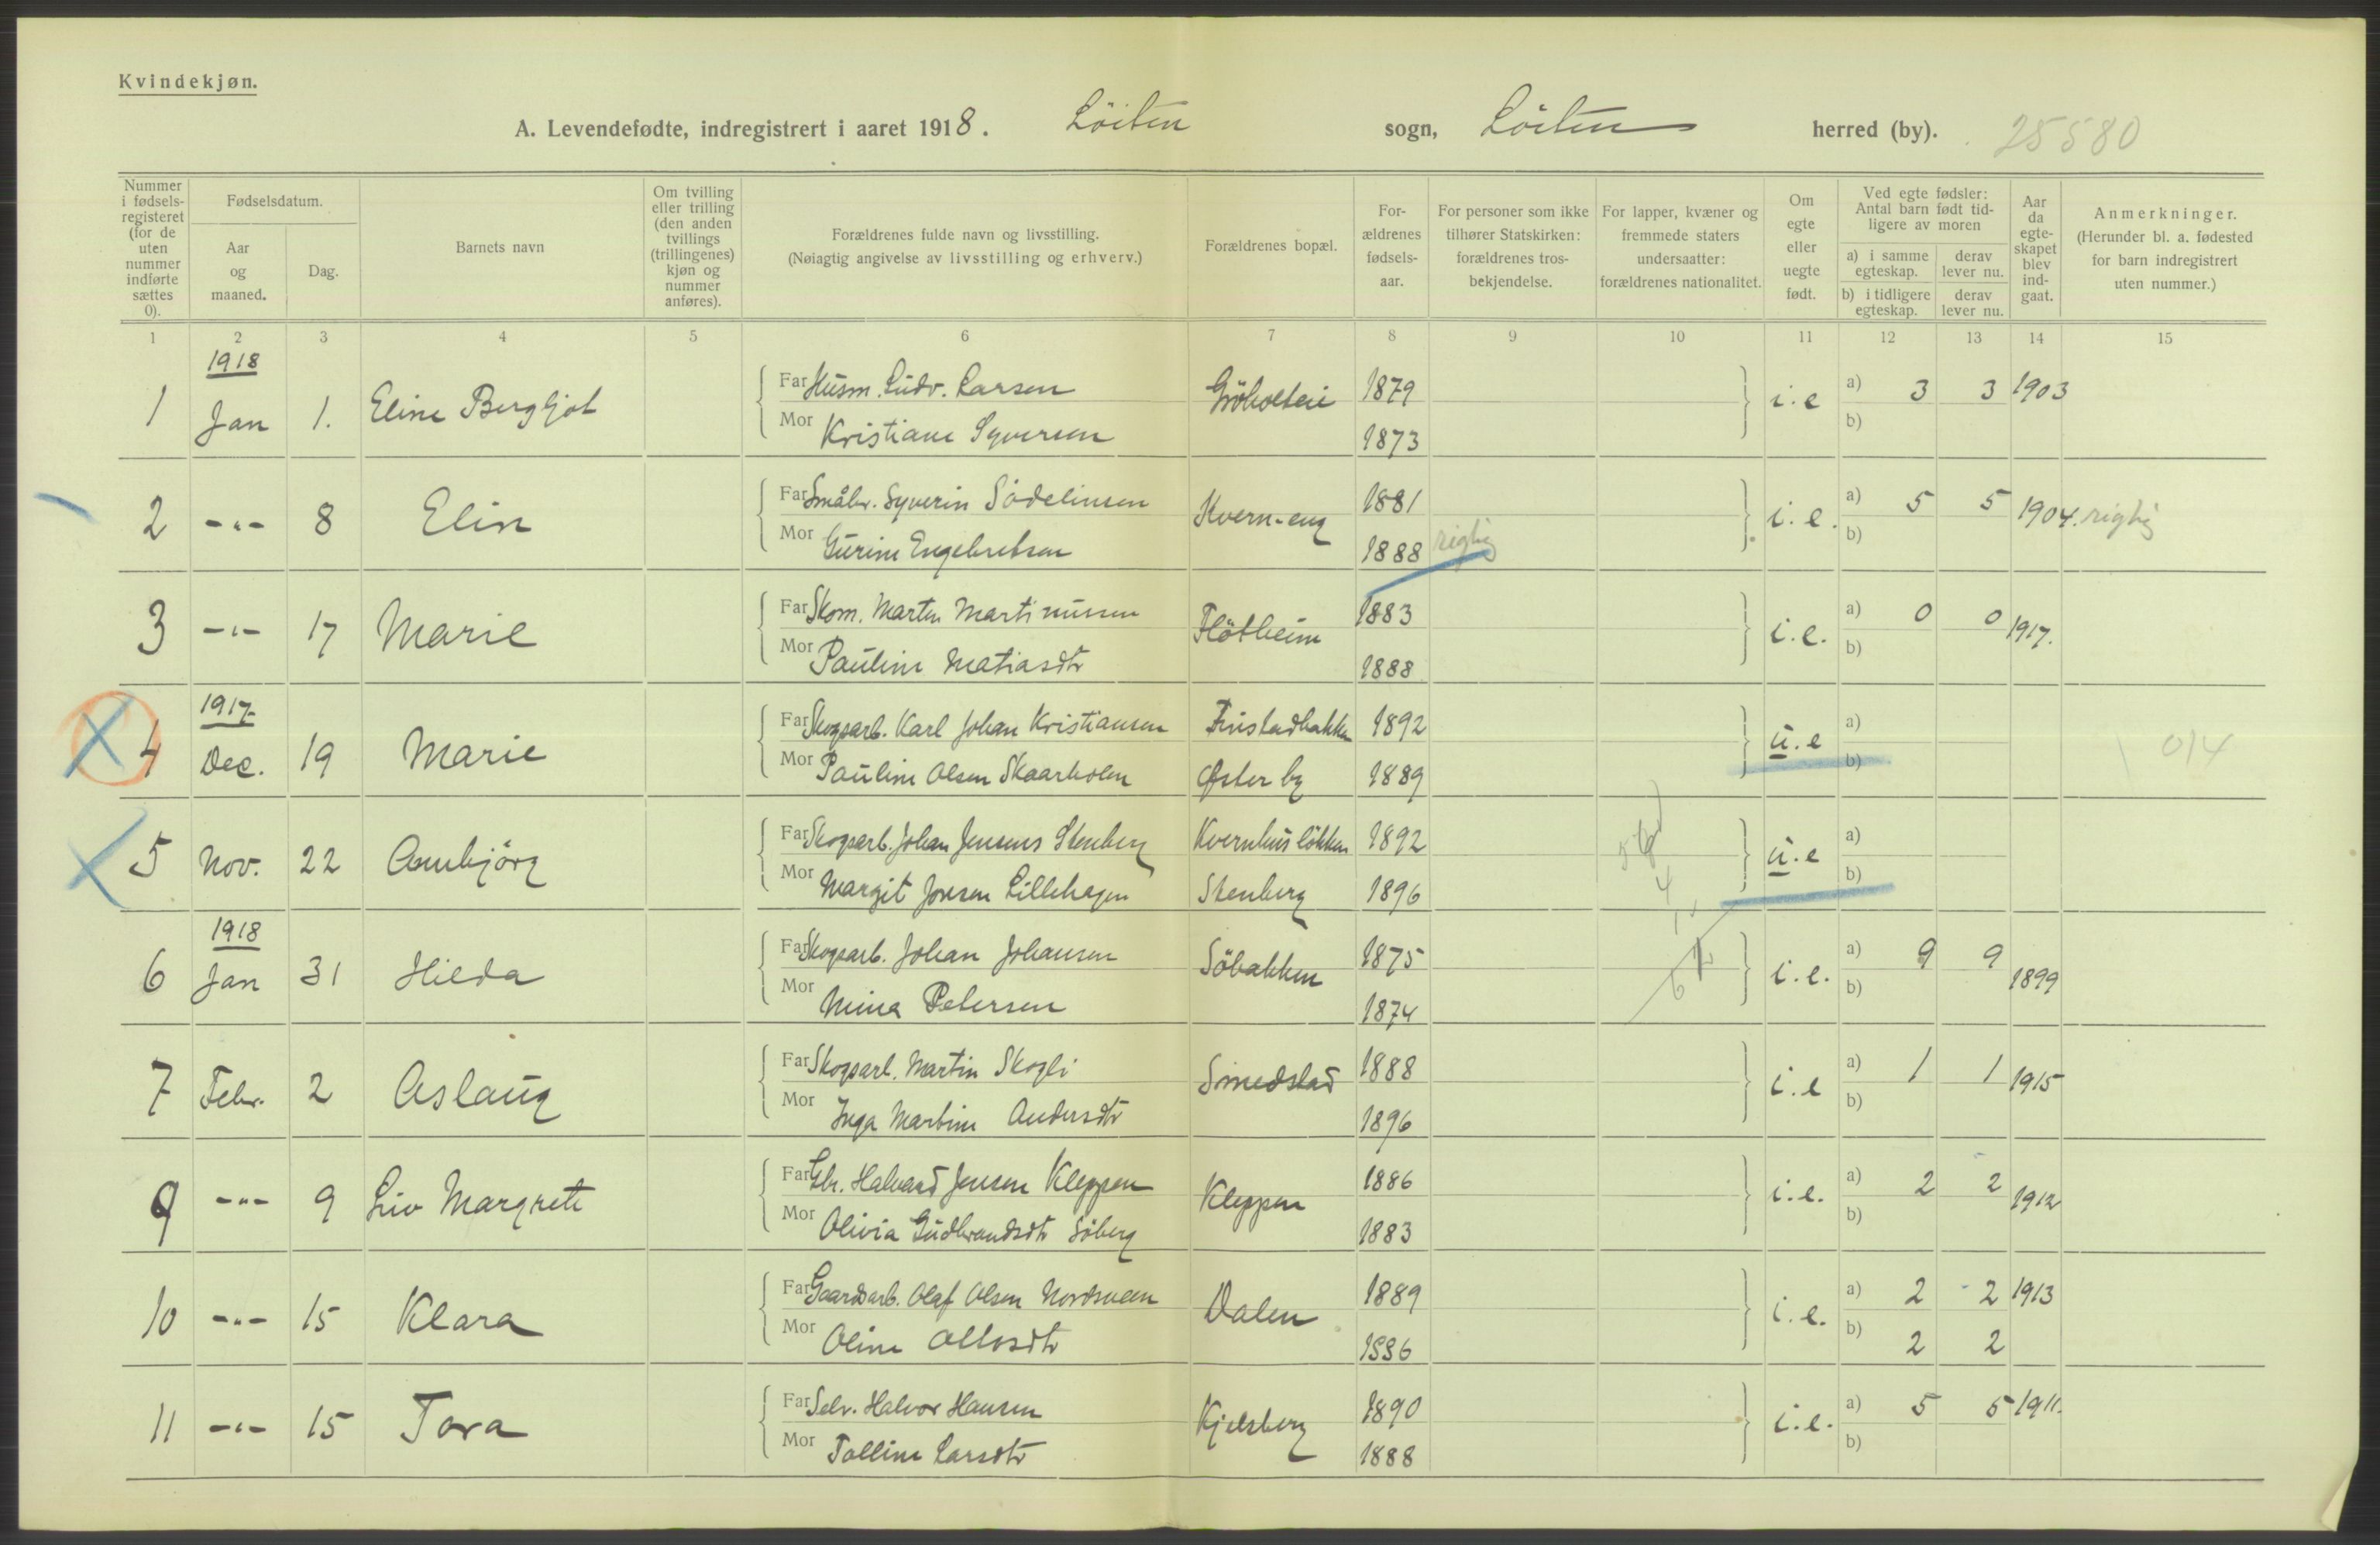 Kvindekjøn.
A. Levendefødte, indregistrert i aaret 1918. Löiten sogn, Löiten herred (by). 25580
Nummer i fødsels-registeret (for de uten nummer indførte sættes 0).
Fødselsdatum.
Aar og maaned.
Dag.
Barnets navn
Om tvilling eller trilling (den anden tvillings (trillingenes) kjøn og nummer anføres).
Forældrenes fulde navn og livsstilling.
(Nøiagtig angivelse av livsstilling og erhverv.)
Forældrenes bopæl.
For-ældrenes fødsels-aar.
For personer som ikke tilhører Statskirken: forældrenes tros-bekjendelse.
For lapper, kvæner og fremmede staters undersaatter: forældrenes nationalitet.
Om egte eller uegte født.
Ved egte fødsler: Antal barn født tid-ligere av moren
a) i samme egteskap.
derav lever nu.
b) i tidligere egteskap.
derav lever nu.
Aar da egte-skapet blev ind-gaat.
Anmerkninger.
(Herunder bl. a. fødested for barn indregistrert uten nummer.)
1 2 3 4 5 6 7 8 9 10 11 12 13 14 15
1918
1 Jan 1. Eline Bergljot Far Husm. Ludv. Larsen 1879 i.e a) 3 3 1903
Mor Kristiane Syversen 1873 b)
2 -"- 8 Elin Far Småbr. Syverin Södelinsen Kvern-eng 1881 i.e. a) 5 5 1904. rigtig
Mor Gurine Engebretsen 1888 rigtig b)
3 -"- 17 Marie Far Skom. Martin Martinussen Flötheim 1883 i.e. a) 0 0 1917.
Mor Pauline Matiasdtr 1888 b)
1917
4 Dec. 19 Marie Far Skogsarb. Karl Johan Kristiansen Finstadbakken 1892 u.e a) 014
Mor Pauline Olsen Skaarholen Øster by 1889 b)
5 Nov. 22 Annbjörg Far Skogsarb. Johan Jensens Stenberg Kvernhuslökken 1892 u.e a)
Mor Margit Jonsen Lillehagen Stenberg 1896 b)
1918
6 Jan 31 Hilda Far Skogsarb. Johan Johansen Söbakken 1875 i.e. a) 9 9 1899
Mor Mina Petersen 1874 b)
7 Febr. 2 Aslaug Far Skogsarb. Martin Skogli Smedstad 1888 i.e a) 1 1 1915
Mor Inga Martine Andersdtr 1896 b)
9 -"- 9 Liv Margrete Far Gbr. Halvard Jensen Kleppen Kleppen 1886 i.e. a) 2 2 1912
Mor Olivia Gudbrandsdtr Söberg 1883 b)
10 -"- 15 Klara Far Gaardsarb. Olaf Olsen Nordsveen Dalen 1889 i.e. a) 2 2 1913
Mor Oline Ottosdtr 1886 b) 2 2
11 -"- 15 Tora Far Selv. Halvor Hansen Kjelsberg 1890 i.e. a) 5 5 1911.
Mor Talline Larsdtr 1888 b)